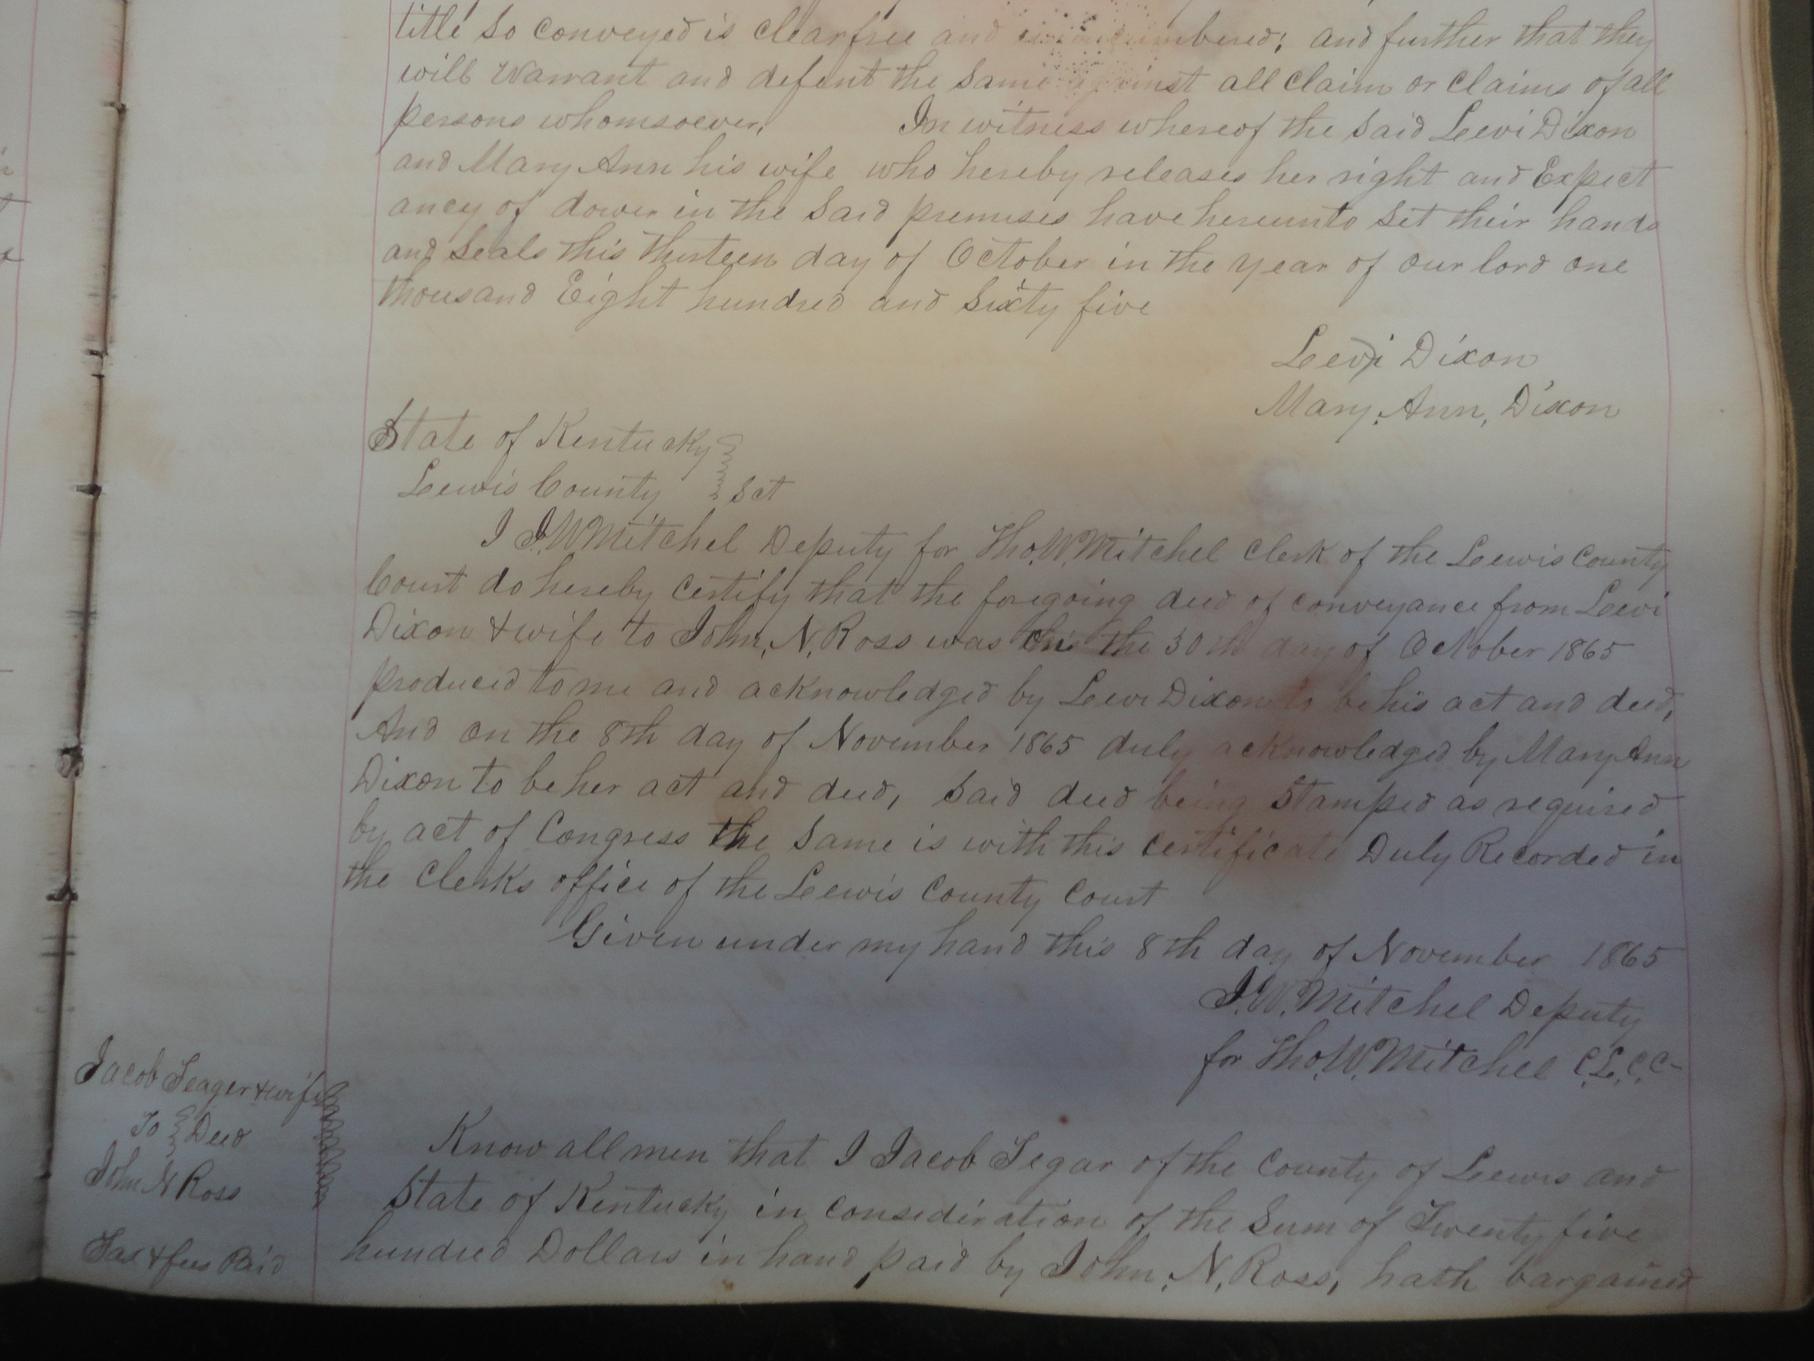 title so conveyed is clear free and unincumbered; and further that they
will warrant and defend the same against all claim or claims of all
persons whomsoever, In witness whereof the said Levi Dixon
and Mary Ann his wife who hereby releases her right and Expect
ancy of dower in the said premises have hereunto set their hands
and seals this thirteen day of October in the year of our lord one
thousand Eight hundred and sixty five
Levi Dixon
Mary. Ann, Dixon
State of Kentucky
Lewis County } Sct
I J.W. Mitchel Deputy for Tho. W. Mitchel Clerk of the Lewis County
Court do hereby certify that the foregoing deed of conveyance from Levi
Dixon & wife to John. N. Ross was on the 30th day of October 1865
produced to me and acknowledged by Levi Dixon to be his act and deed,
And on the 8th day of November 1865 duly acknowledged by Mary Ann
Dixon to be her act and deed, said deed being stamped as required
by act of Congress the same is with this certificate Duly Recorded in
the Clerks office of the Lewis County Court
Given under my hand this 8th day of November 1865
J. W. Mitchel Deputy
for Tho. W. Mitchel C.L.C.C.
Jacob Seager & wife
To } Deed
John N Ross
Tax & fees Paid
Know all men that I Jacob Segar of the County of Lewis and
State of Kentucky in consideration of the Sum of Twenty five
hundred Dollars in hand paid by John. N. Ross, hath bargained